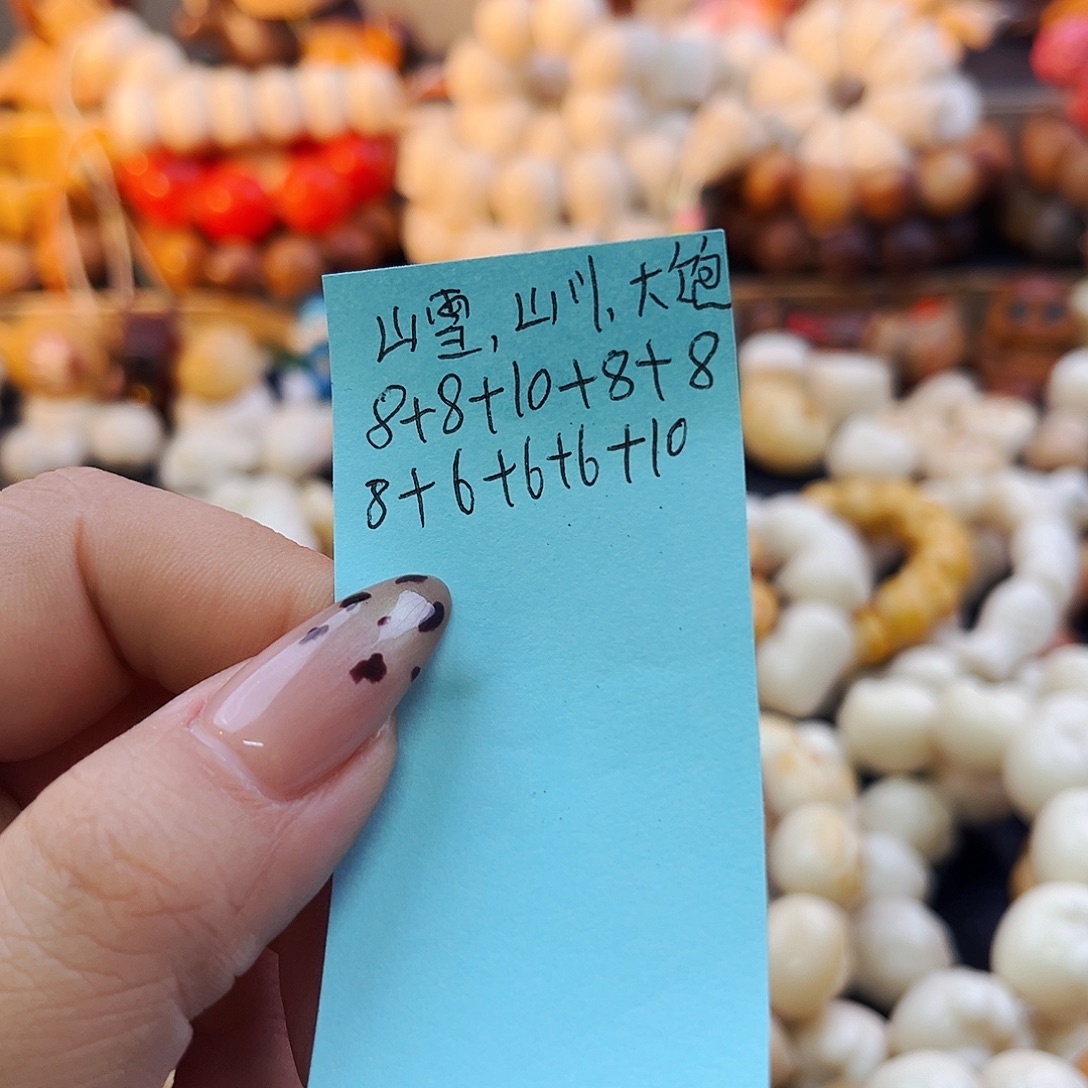 山雪,山川,大饱
8+8+10+8+8
8+6+6+6+10